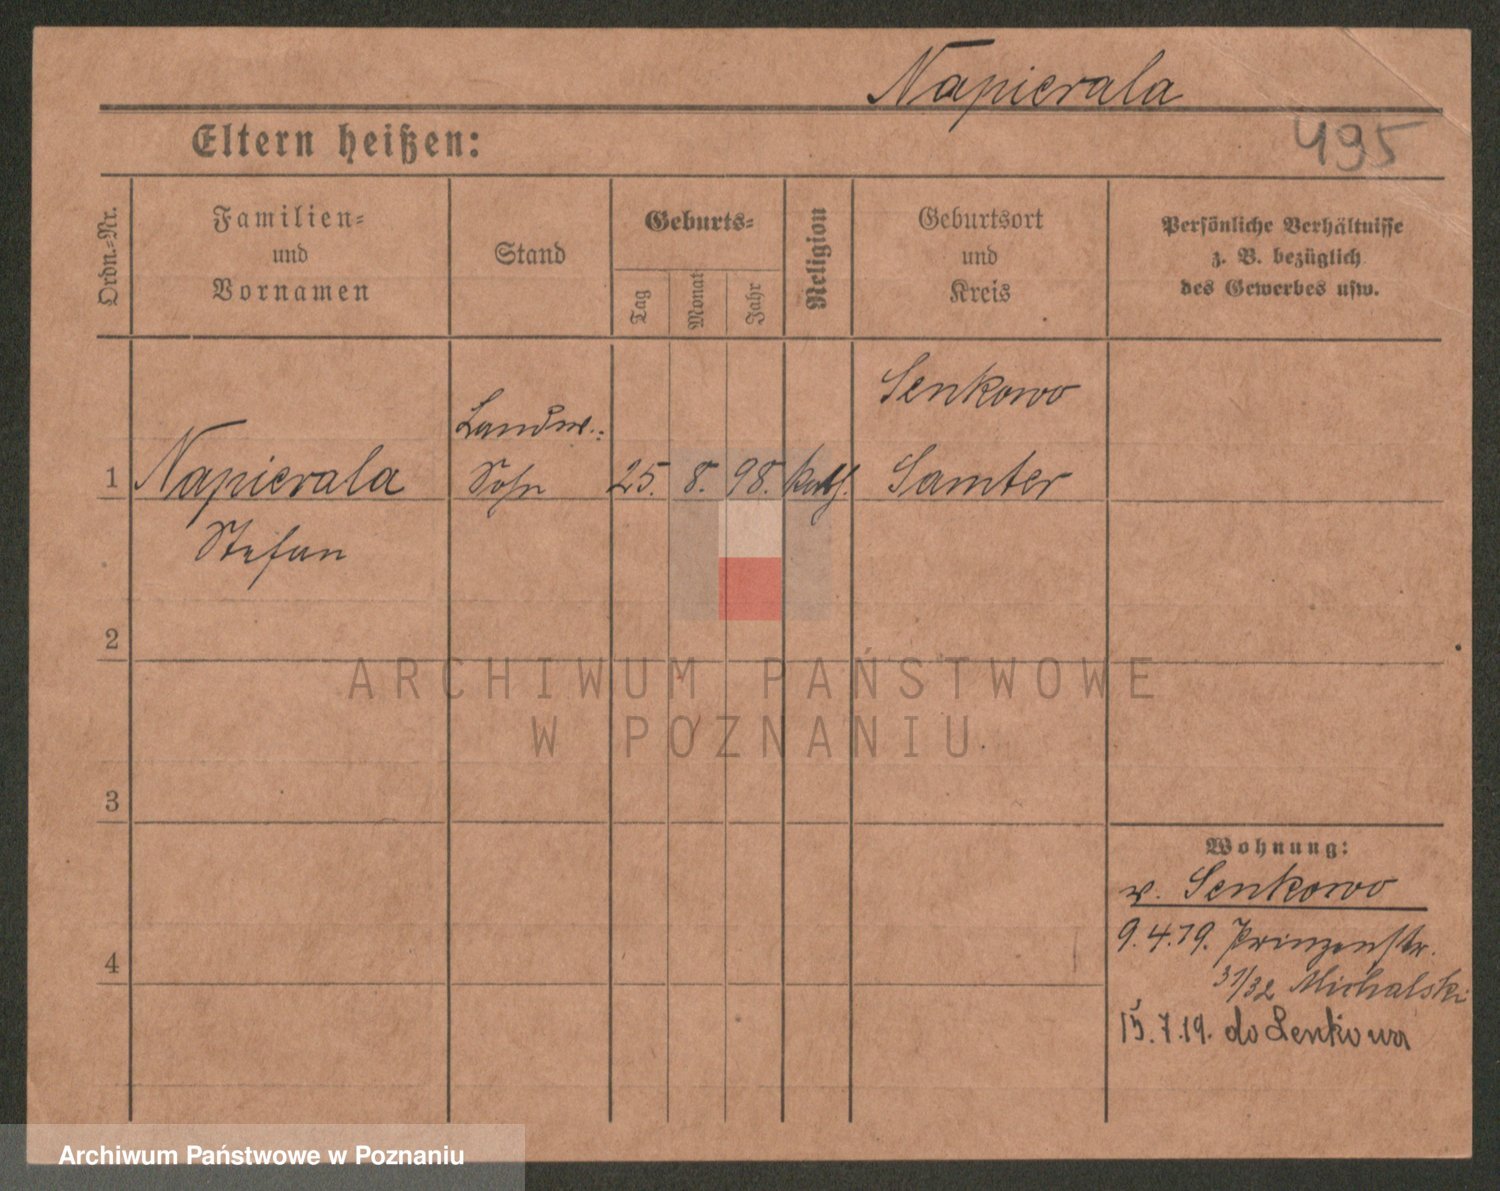 Napierala
Eltern heißen:
495
Ordn.=Nr.
Familien=
und
Vornamen
Stand
Geburts=
Tag
Monat
Jahr
Religion
Geburtsort
und
Kreis
Persönliche Verhältnisse
z. B. bezüglich
des Gewerbes usw.
Senkowo
Landw.:
1 Napierala Sohn 25. 8. 98. kath. Samter
Stefan
2
ARCHIWUM PAŃSTWOWE
W POZNANIU
3
Wohnung:
v. Senkowo
9.4.19. Prinzenstr.
31/32 Michalski
4
15.7.19. do Senkowa
Archiwum Państwowe w Poznaniu